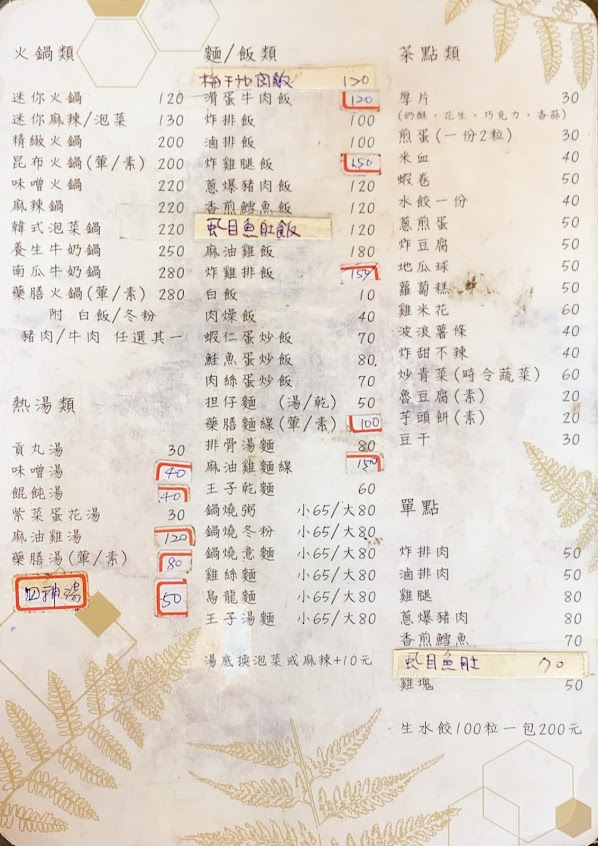 火鍋類
迷你火鍋 120
迷你麻辣/泡菜 130
精緻火鍋 200
昆布火鍋(葷/素) 200
味噌火鍋 220
麻辣鍋 220
韓式泡菜鍋 220
養生牛奶鍋 250
南瓜牛奶鍋 280
藥膳火鍋(葷/素) 280
附 白飯/冬粉
豬肉/牛肉 任選其一
熱湯類
貢丸湯 30
味噌湯 40
餛飩湯 40
紫菜蛋花湯 30
麻油雞湯 120
藥膳湯(葷/素) 80
四神湯 50
麵/飯類
梅干扣肉飯 130
滑蛋牛肉飯 120
炸排飯 100
滷排飯 100
炸雞腿飯 150
蔥爆豬肉飯 120
香煎鱈魚飯 120
虱目魚肚飯 120
麻油雞飯 180
炸雞排飯 150
白飯 10
肉燥飯 40
蝦仁蛋炒飯 70
鮭魚蛋炒飯 80
肉絲蛋炒飯 70
担仔麵 (湯/乾) 50
藥膳麵線(葷/素) 100
排骨湯麵 80
麻油雞麵線 150
王子乾麵 60
鍋燒粥 小65/大80
鍋燒冬粉 小65/大80
鍋燒意麵 小65/大80
雞絲麵 小65/大80
烏龍麵 小65/大80
王子湯麵 小65/大80
湯底換泡菜或麻辣+10元
茶點類
厚片 30
(奶酥、花生、巧克力、香蒜)
煎蛋(一份2粒) 30
米血 40
蝦卷 50
水餃一份 40
蔥煎蛋 50
炸豆腐 50
地瓜球 50
蘿蔔糕 50
雞米花 60
波浪薯條 40
炸甜不辣 40
炒青菜(時令蔬菜) 60
魯豆腐(素) 20
芋頭餅(素) 20
豆干 30
單點
炸排肉 50
滷排肉 50
雞腿 80
蔥爆豬肉 80
香煎鱈魚 70
虱目魚肚 70
雞塊 50
生水餃100粒一包200元